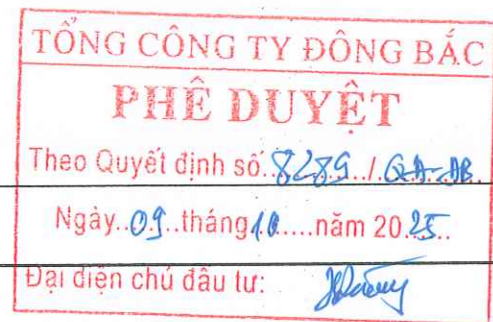 TỔNG CÔNG TY ĐÔNG BẮC
PHÊ DUYỆT
Theo Quyết định số..8289../.QĐ-ĐB
Ngày..09..tháng.10.....năm 20.25..
Đại diện chủ đầu tư: